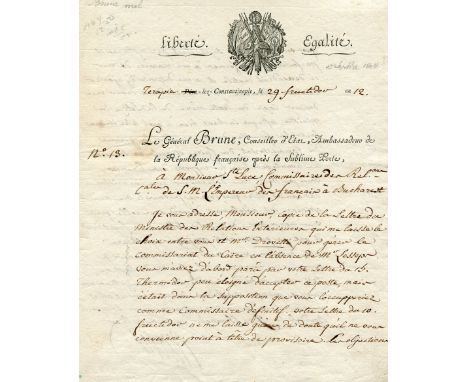 Liberté. Egalité.
Terapia lez-Constantinople, le 29 fructidor an 12.
Le Général Brune, Conseiller d'Etat, Ambassadeur de
la République française près la Sublime Porte,
N.º 13.
À Monsieur Ste Luce Commissaire des Rel.
Cales de S. M. L'Empereur des français à Bucharest
Je vous adresse, Monsieur, copie de la Lettre du
Ministre des Relations Exterieures qui me laisse le
choix entre vous et Mr. Drovetti pour gerer le
commissariat du Caire en l'absence de Mr. Lesseps
vous m'aviez d'abord paru par votre Lettre du 15
Thermidor peu eloigné d'accepter ce poste, mais
c'etait dans la supposition que vous l'occuperiez
comme Commissaire definitif. votre Lettre du 10
fructidor ne me laisse guère de doute qu'il ne vous
convienne point à titre de provisoire. Les objections